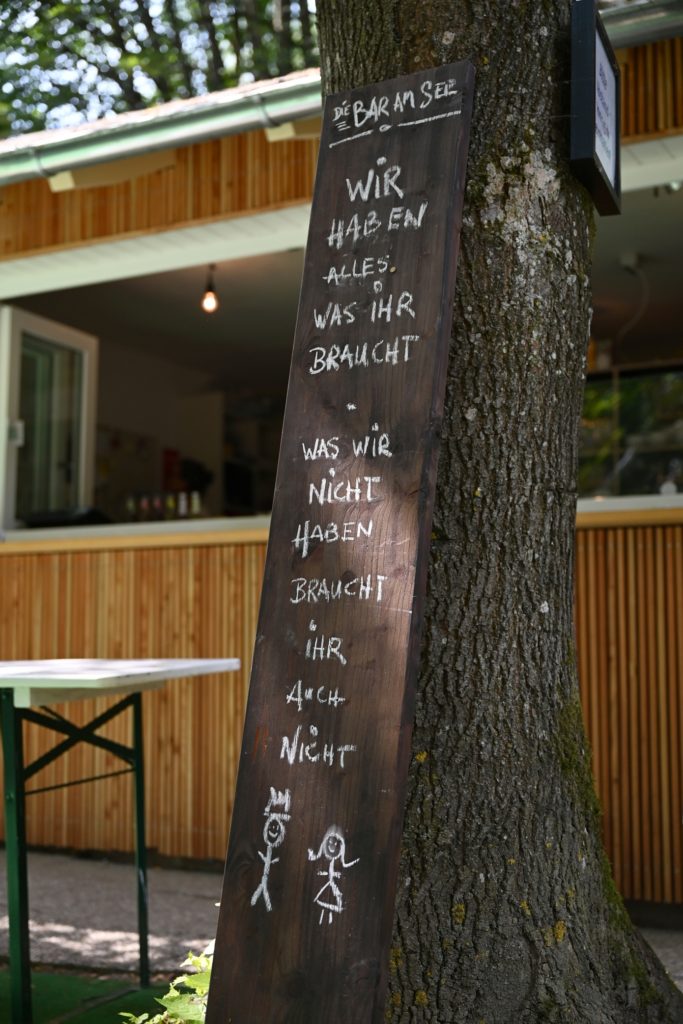 DIE BAR AM SEE
WIR
HABEN
ALLES.
WAS IHR
BRAUCHT
-
WAS WIR
NICHT
HABEN
BRAUCHT
IHR
AUCH
NICHT